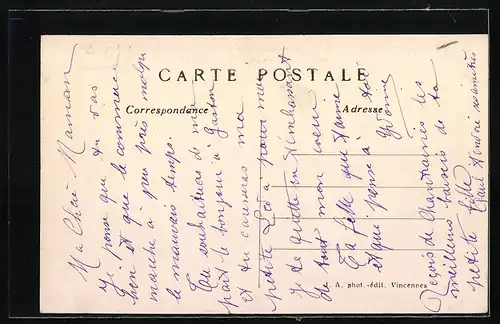 CARTE POSTALE
Correspondance
Adresse
Ma Chère Maman
Je pense que tu vas
bien et que le commerce
marche à peu près malgré
le mauvais temps.
Tu souhaiteras de ma
part le bonjour à Gaston
et tu caresseras ma
petite Léda pour moi
Je te quitte en t'embrassant
de tout mon cœur
Ta fille qui t'aime
et qui pense à toi
Yvonne
Reçois de Chantraines les
meilleurs baisers de ta
petite fille
A. phot.-édit. Vincennes